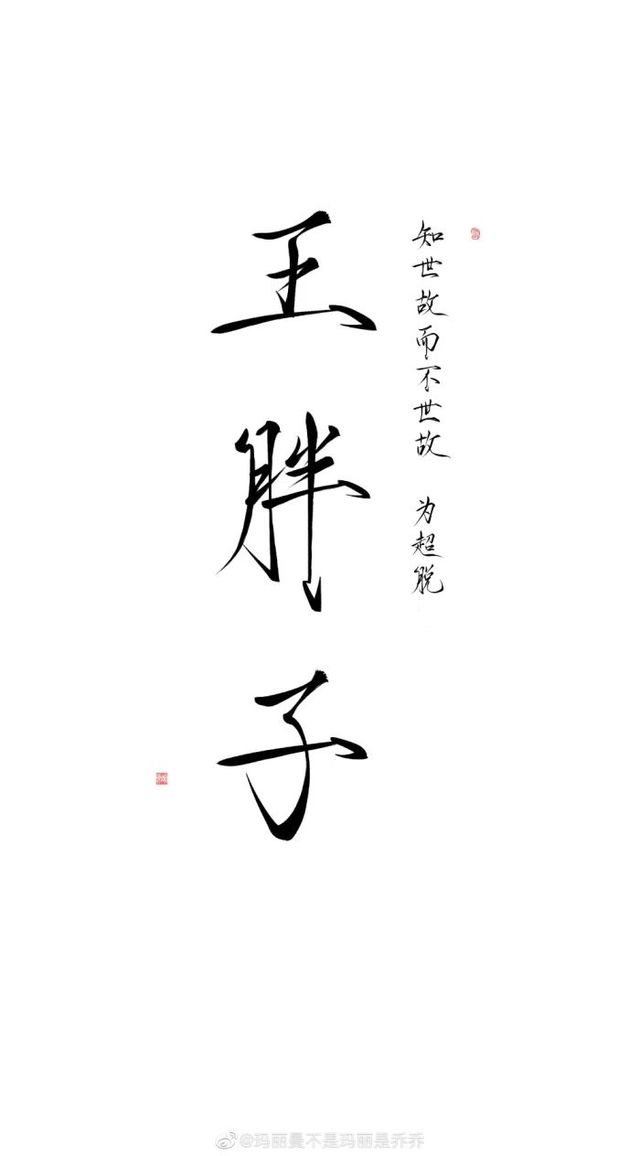 知世故而不世故 为超脱
王胖子
@玛丽曼不是玛丽是乔乔